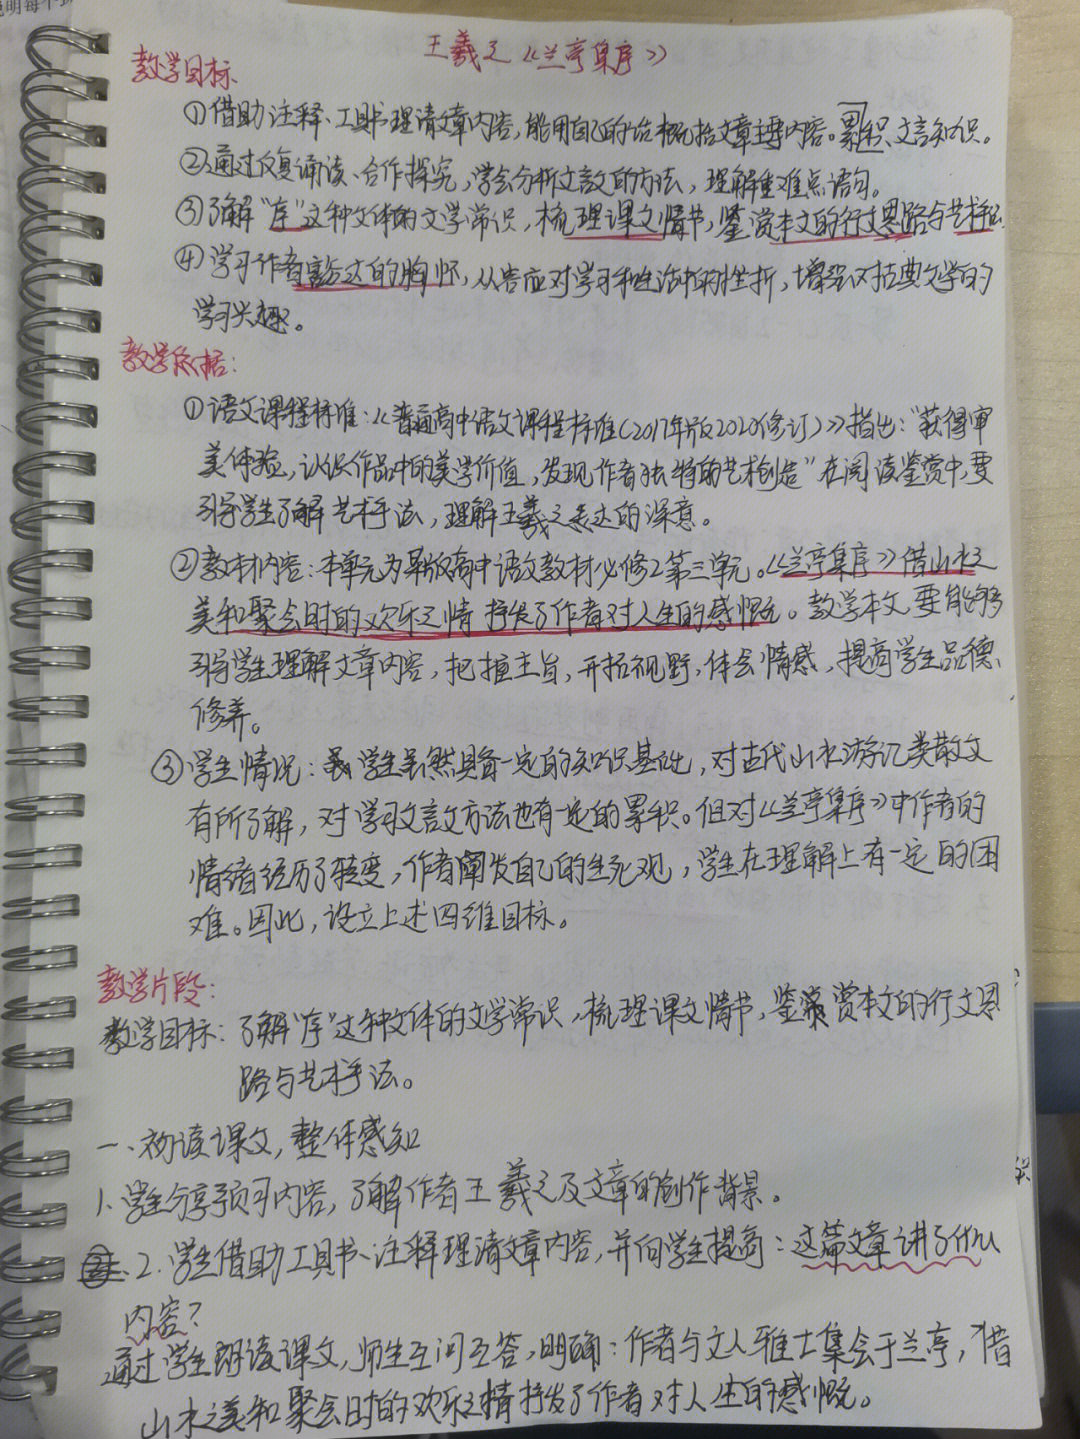 说明每个
王羲之《兰亭集序》
教学目标
①借助注释、工具书理清文章内容,能用自己的话概括文章主要内容。累积文言知识。
②通过反复诵读、合作探究,学会分析文言文的方法,理解重难点语句。
③了解“序”这种文体的文学常识,梳理课文情节,鉴赏本文的行文思路与艺术手法
④学习作者豁达的胸怀,从容应对学习和生活中的挫折,增强对古典文学的
学习兴趣。
教学依据:
①语文课程标准:《普通高中语文课程标准(2017年版2020修订)》指出:“获得审
美体验,认识作品中的美学价值,发现作者独特的艺术创造”在阅读鉴赏中,要
引导学生了解艺术手法,理解王羲之表达的深意。
②教材内容:本单元为粤版高中语文教材必修2第三单元。《兰亭集序》借山水之
美和聚会时的欢乐之情抒发了作者对人生的感慨。教学本文要能够
引导学生理解文章内容,把握主旨,开拓视野,体会情感,提高学生品德
修养。
③学生情况:学生虽然具备一定的知识基础,对古代山水游记类散文
有所了解,对学习文言文方法也有一定的累积。但对《兰亭集序》中作者的
情绪经历了转变,作者阐发自己的生死观,学生在理解上有一定的困
难。因此,设立上述四维目标。
教学片段:
教学目标:了解“序”这种文体的文学常识,梳理课文情节,鉴赏本文的行文思
路与艺术手法。
一、初读课文,整体感知
1.学生分享预习内容,了解作者王羲之及文章的创作背景。
2.学生借助工具书、注释理清文章内容,并向学生提高:这篇文章讲了什么
内容?
通过学生朗读课文,师生互问互答,明确:作者与文人雅士集会于兰亭,借
山水之美和聚会时的欢乐之情抒发了作者对人生的感慨。